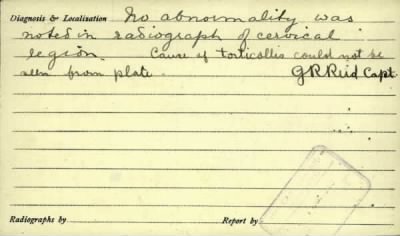 Diagnosis & Localization No abnormality was
noted in radiograph of cervical
region. Cause of torticollis could not be
seen from plate. G R Reid Capt.
Radiographs by Report by